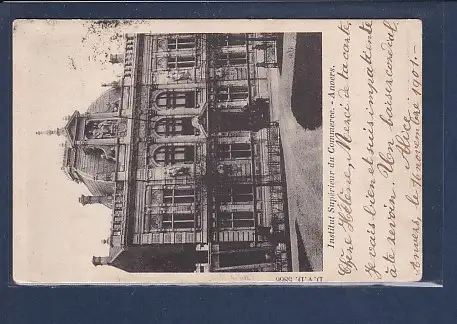 D. V. D. 5866
Institut Supérieur du Commerce. - Anvers.
Chère Hélène, Merci de ta carte,
je vais bien et suis impatiente
à te revoir. Un baiser cordial.
Alice.
Anvers, le novembre 1901.-